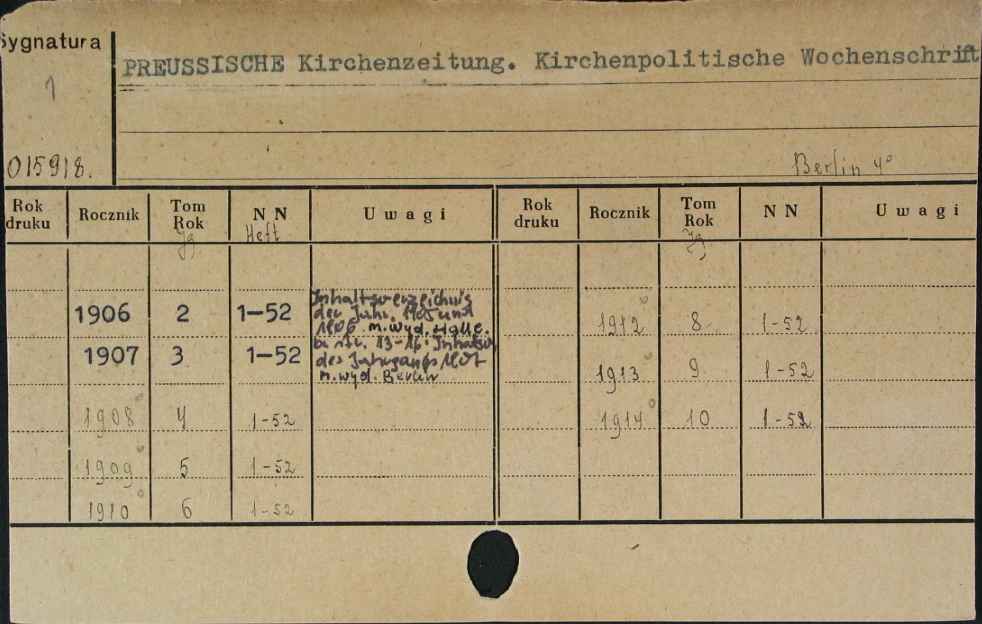 Sygnatura
PREUSSISCHE Kirchenzeitung. Kirchenpolitische Wochenschrift
1
015918.
Berlin 4°
Rok druku Rocznik Tom Rok NN Uwagi Rok druku Rocznik Tom Rok NN Uwagi
Jg Heft Jg
1906 2 1-52 Inhaltsverzeichnis
der Jahr. 1905 und
1906 m.wyd. Halle.
1907 3 1-52 13-16. Inhaltsv
des Jahrgangs 1907
m.wyd. Berlin
1908° 4 1-52
1909° 5 1-52
1910° 6 1-52
1912° 8 1-52
1913° 9 1-52
1914° 10 1-52